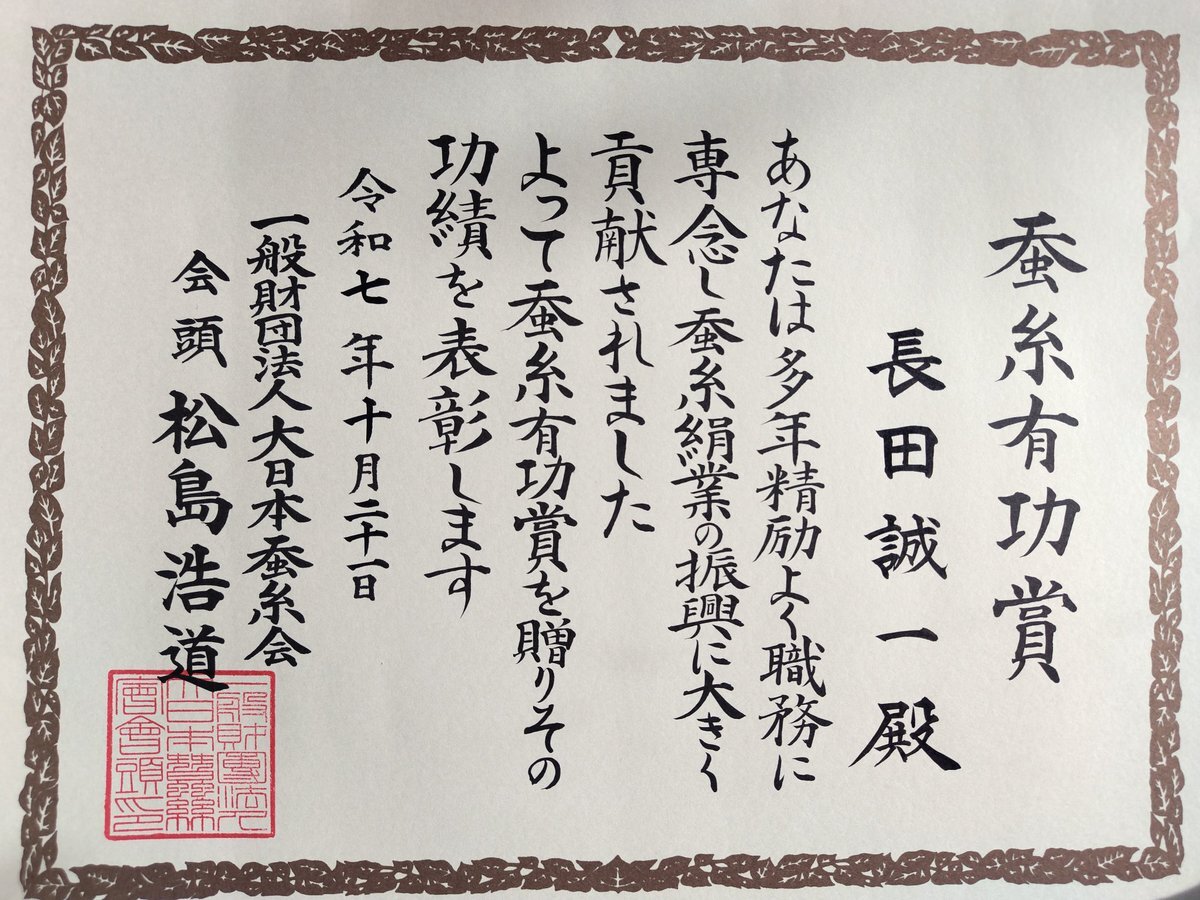 蚕糸有功賞
長田誠一殿
あなたは多年精励よく職務に
専念し蚕糸絹業の振興に大きく
貢献されました
よって蚕糸有功賞を贈りその
功績を表彰します
令和七年十月二十一日
一般財団法人大日本蚕糸会
会頭松島浩道
一般財團法人
大日本蠶絲
會會頭印